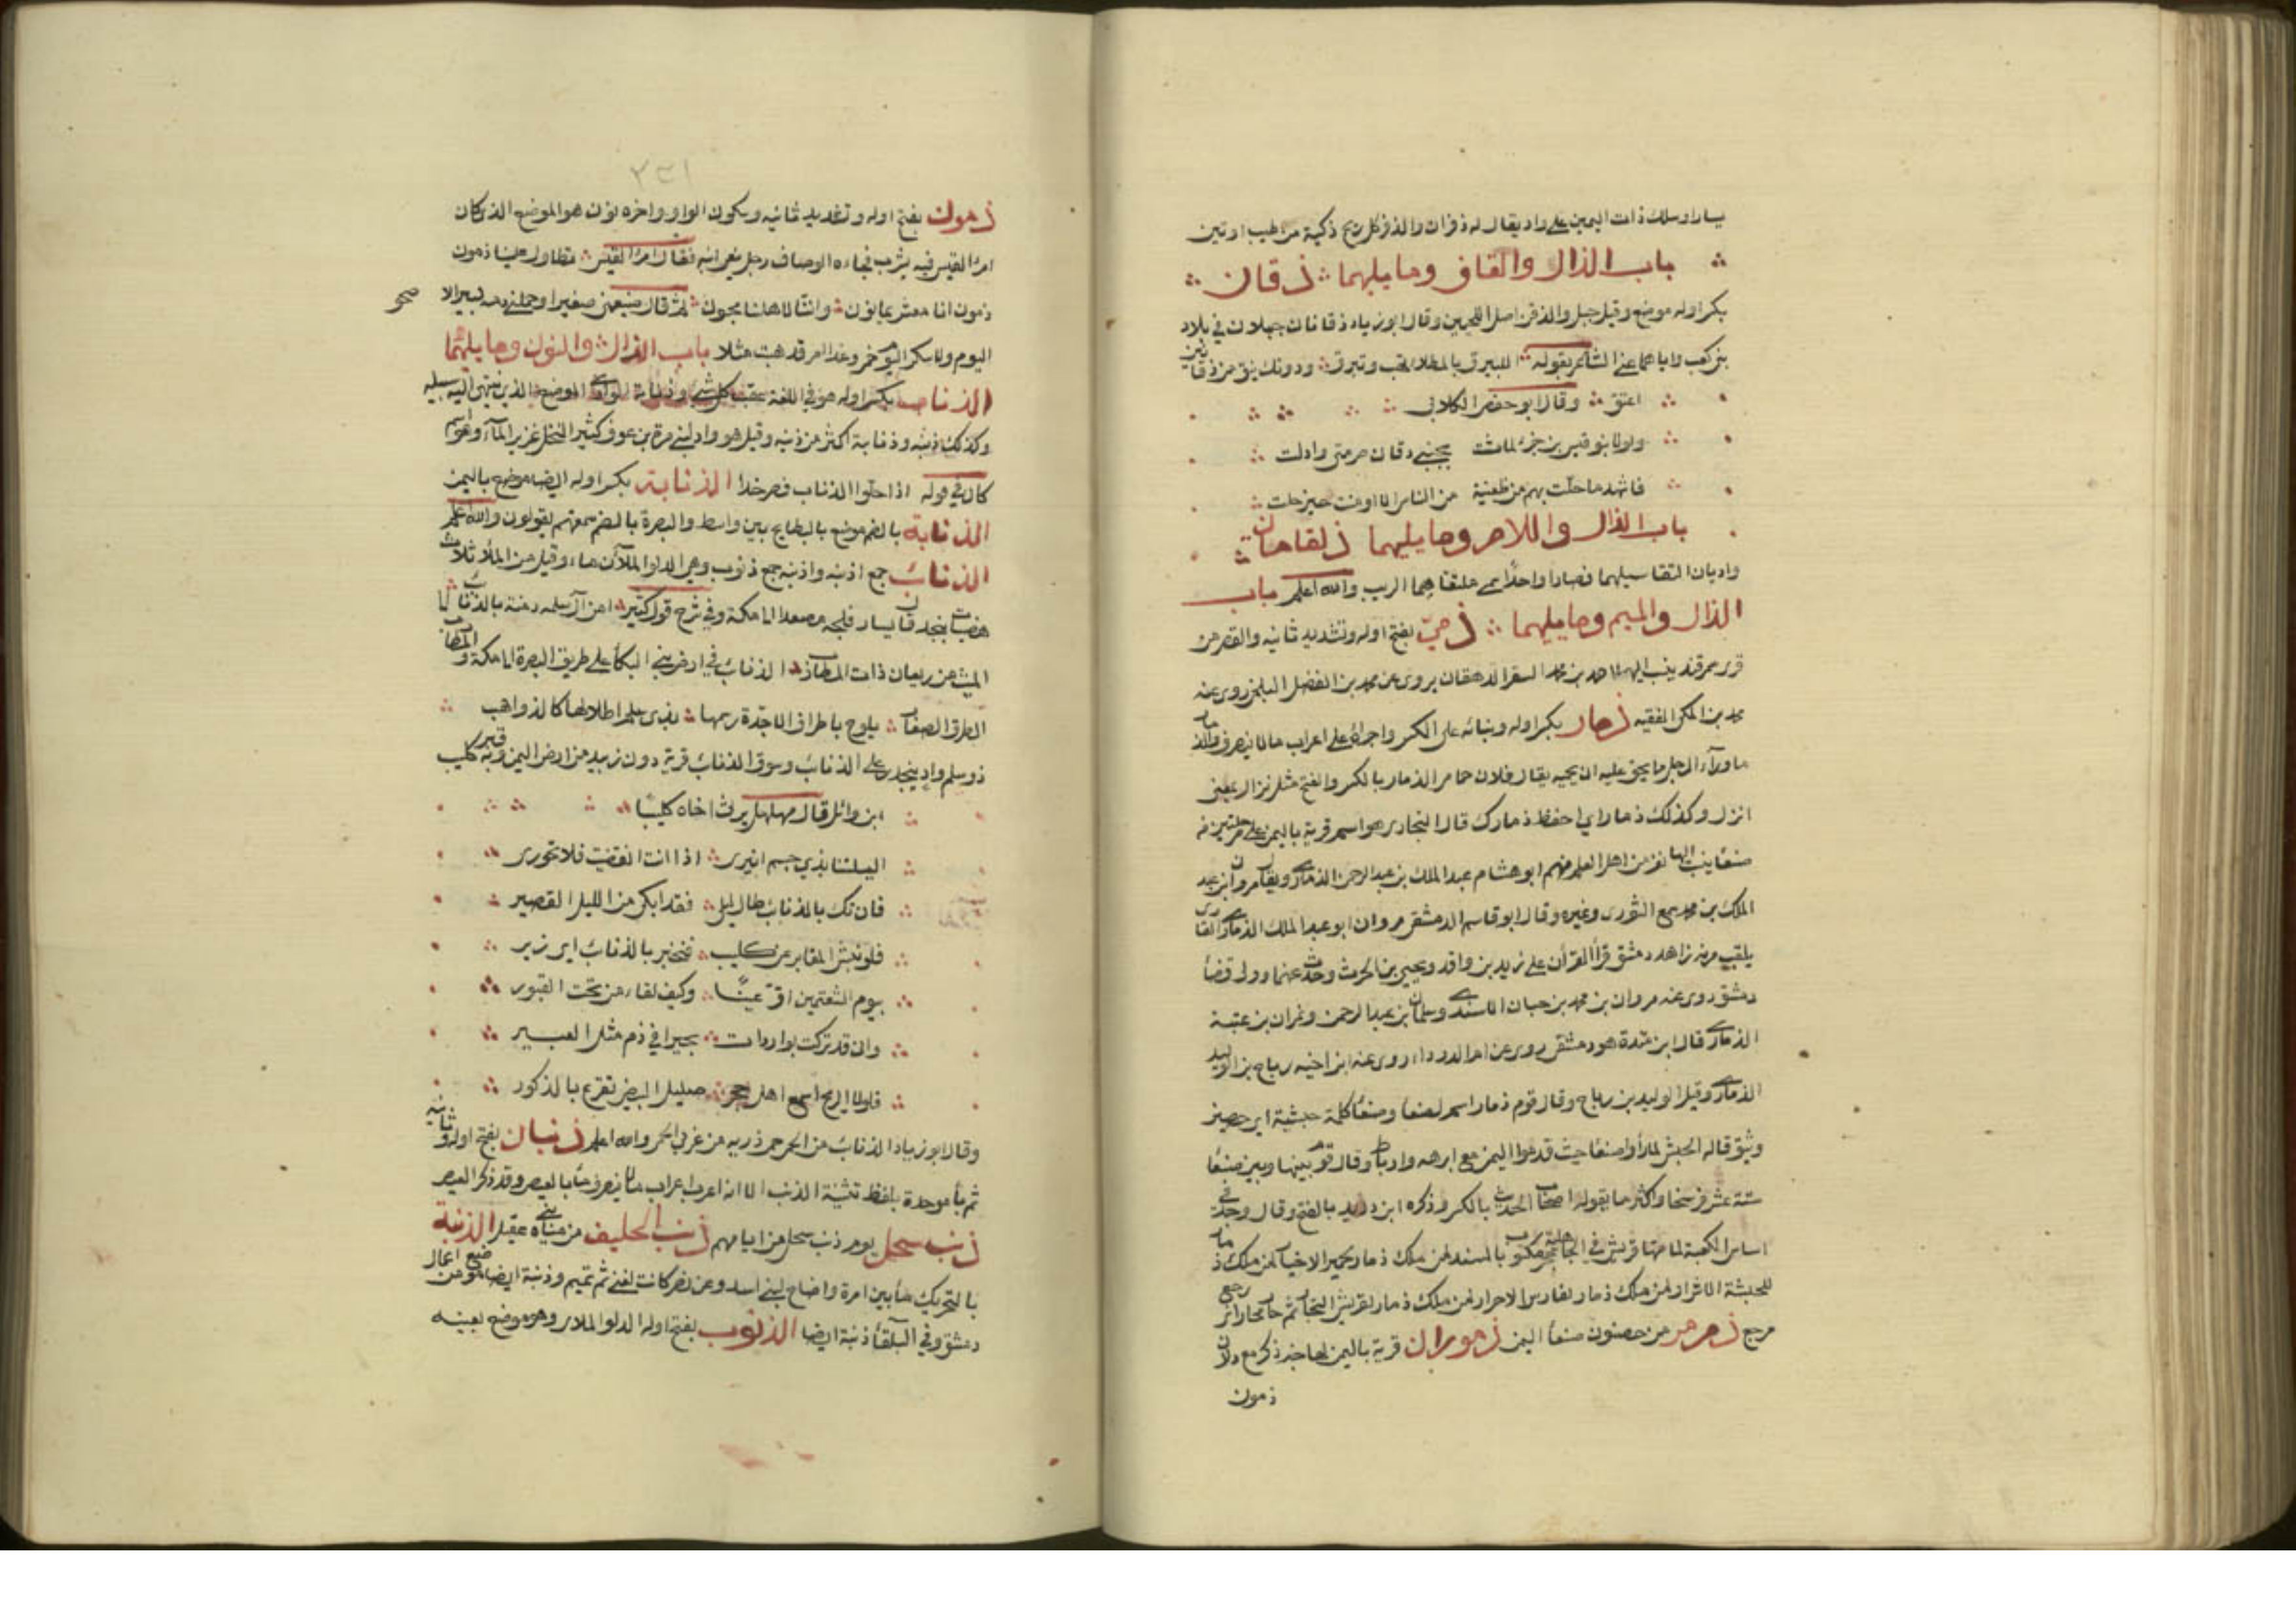 يسارا وسلك ذات اليمين على واد يقال له ذفران والذفر كل ريح ذكية من طيب او نتن
باب الذال والقاف وما يليهما ذقان
بكسر اوله موضع وقيل جبل والذقن اصل اللحيين وقال ابو زياد ذقانان جبلان في بلاد
بني كعب واياهما عنى الشاعر بقوله اللبرق بالمطلا تهب وتبرق ودونك نيق من ذقانين
اعنق وقال ابو حفص الكلابي
ولولا بنو قيس بن جزء لما مشت بجنبي ذقان صرمتي وادلت
فاشهد ما حلت بهم من ظعينة من الناس الا اومنت حيث حلت
باب الذال واللام وما يليهما ذلقامان
واديان التقا سيلهما فصارا واحدا سمي ملتقاهما الريب والله اعلم باب
الذال والميم وما يليهما ذمي بفتح اوله وتشديد ثانيه والقصر من
قرى سمرقند ينسب اليها احمد بن محمد السقر الدهقان يروى عن محمد بن الفضل البلخي روى عنه
محمد بن المكي الفقيه ذمار بكسر اوله وبنائه على الكسر واجرائه على اعراب ما لا ينصرف والذمار
ما وراء الرجل مما يحق عليه ان يحميه يقال فلان حامى الذمار بالكسر والفتح مثل نزال بمعنى
انزل وكذلك ذمار اي احفظ ذمارك قال البخارى هو اسم قرية باليمن على مرحلتين من
صنعا ينسب اليها نفر من اهل العلم منهم ابو هشام عبد الملك بن عبد الرحمن الذماري ويقال مروان بن عبد
الملك بن محمد سمع الثورى وغيره وقال ابو قاسم الدمشقي مروان ابو عبد الملك الذماري القارى
يلقب مزنه زاهد دمشق قرأ القرأن على زيد بن واقد ويحيى بن الحرث وحدث عنهما وولى قضا
دمشق روى عنه مروان بن محمد بن حسان الاسدي وسليمان بن عبد الرحمن ونمران بن عتبة
الذماري قال ابن مندة هو دمشقي روى عن ام الدرداء روى عنه ابن اخيه رباح بن الوليد
الذماري وقيل الوليد بن رباح وقال قوم ذمار اسم لصنعا وصنعا كلمة حبشية اي حصين
وثيق قاله الحبش لما رأوا صنعا حيث قدموا اليمن مع ابرهه وارياط وقال قوم بينها وبين صنعا
ستة عشر فرسخا واكثر ما يقوله اصحاب الحديث بالكسر وذكره ابن دريد بالفتح وقال وجد في
اساس الكعبة لما هدمتها قريش في الجاهلية حجر مكتوب بالمسند لمن ملك ذمار لحمير الاخيار لمن ملك ذمار
للحبشة الاشرار لمن ملك ذمار لفارس الاحرار لمن ملك ذمار لقريش التجار ثم حار محار اي رجع
مرجع ذمرمر من حصون صنعا اليمن ذموران قرية باليمن لها خبر ذكر مع دلان
ذمون
٢٣١
ذمون بفتح اوله وتشديد ثانيه وسكون الواو واخره نون هو الموضع الذي كان
امرؤ القيس فيه يشرب فجاءه الوصاف رجل بنعي ابيه فقال امرؤ القيس تطاول علينا ذمون
ذمون انا معشر يمانون وانتا لاهلنا محبون ثم قال ضيعني صغيرا وحملني دمه كبيرا لا صحو
اليوم ولا سكر اليوم خمر وغدا امر فذهبت مثلا باب الذال والنون وما يليهما
الذناب بكسر اوله هو في اللغة عقب كل شي وذنابة الوادي الموضع الذي ينتهي اليه سيله
وكذلك ذنبه وذنابة اكثر من ذنبه وقيل هو واد لبني مرة بن عوف كثير النخل غزير الماء واسم
كان في قوله اذا حلوا الذناب فصرخدا الذنابة بكسر اوله ايضا موضع باليمن
الذنابة بالضم موضع بالبطايح بين واسط والبصرة بالضم سمعتهم يقولون والله اعلم
الذنائب جمع اذنبه واذنبه جمع ذنوب وهي الدلو الملآن ماء وقيل هن الملأ ثلاث
هضبات بنجد قال يسار فلجه مصعدا الى مكة وفي شرح قول كثير امن آل سلمى دمنة بالذنائب الى
الميث من ريعان ذات المطارب الذنائب في ارض بني البكأ على طريق البصرة الى مكة والمطارب
الطرق الصغار يلوح باطراف الاجدة رسمها بذي سلم اطلالها كالذواهب
ذو سلم واد ينحدر على الذنائب وسوق الذنائب قرية دون زبيد من ارض اليمن وبه قبر كليب
ابن وائل قال مهلهل يرثي اخاه كليبا
اليلتنا بذي حسم انيرى اذا انت انقضيت فلا تحورى
فان تك بالذنائب طال ليلي فقد ابكي من الليل القصير
فلو نبش المقابر عن كليب فتخبر بالذنائب اي زير
بيوم الشعثمين اقر عينا وكيف لقاء من تحت القبور
واني قد تركت بواردات بجيرا في دم مثل العبير
فلولا الريح اسمع اهل حجر صليل البيض تقرع بالذكور
وقال ابو زياد الذنائب من الحمى حمى ضريه من غربي الحمى والله اعلم ذنبان بفتح اوله وثانيه
ثم بأ موحدة بلفظ تثنية الذنب الا انه اعرب اعراب ما لا ينصرف مأ بالعيص وقد ذكر العيص
ذنب سحل يوم ذنب سحل من ايامهم ذنب الحليف من مياه بني عقيل الذنبة
بالتحريك مأ بين امرة واضاخ لبني اسد وعن نصر كانت لغني ثم تميم وذنبة ايضا موضع من اعمال
دمشق وفي البلقأ ذنبة ايضا الذنوب بفتح اوله الدلو الملأى وهو موضع بعينه